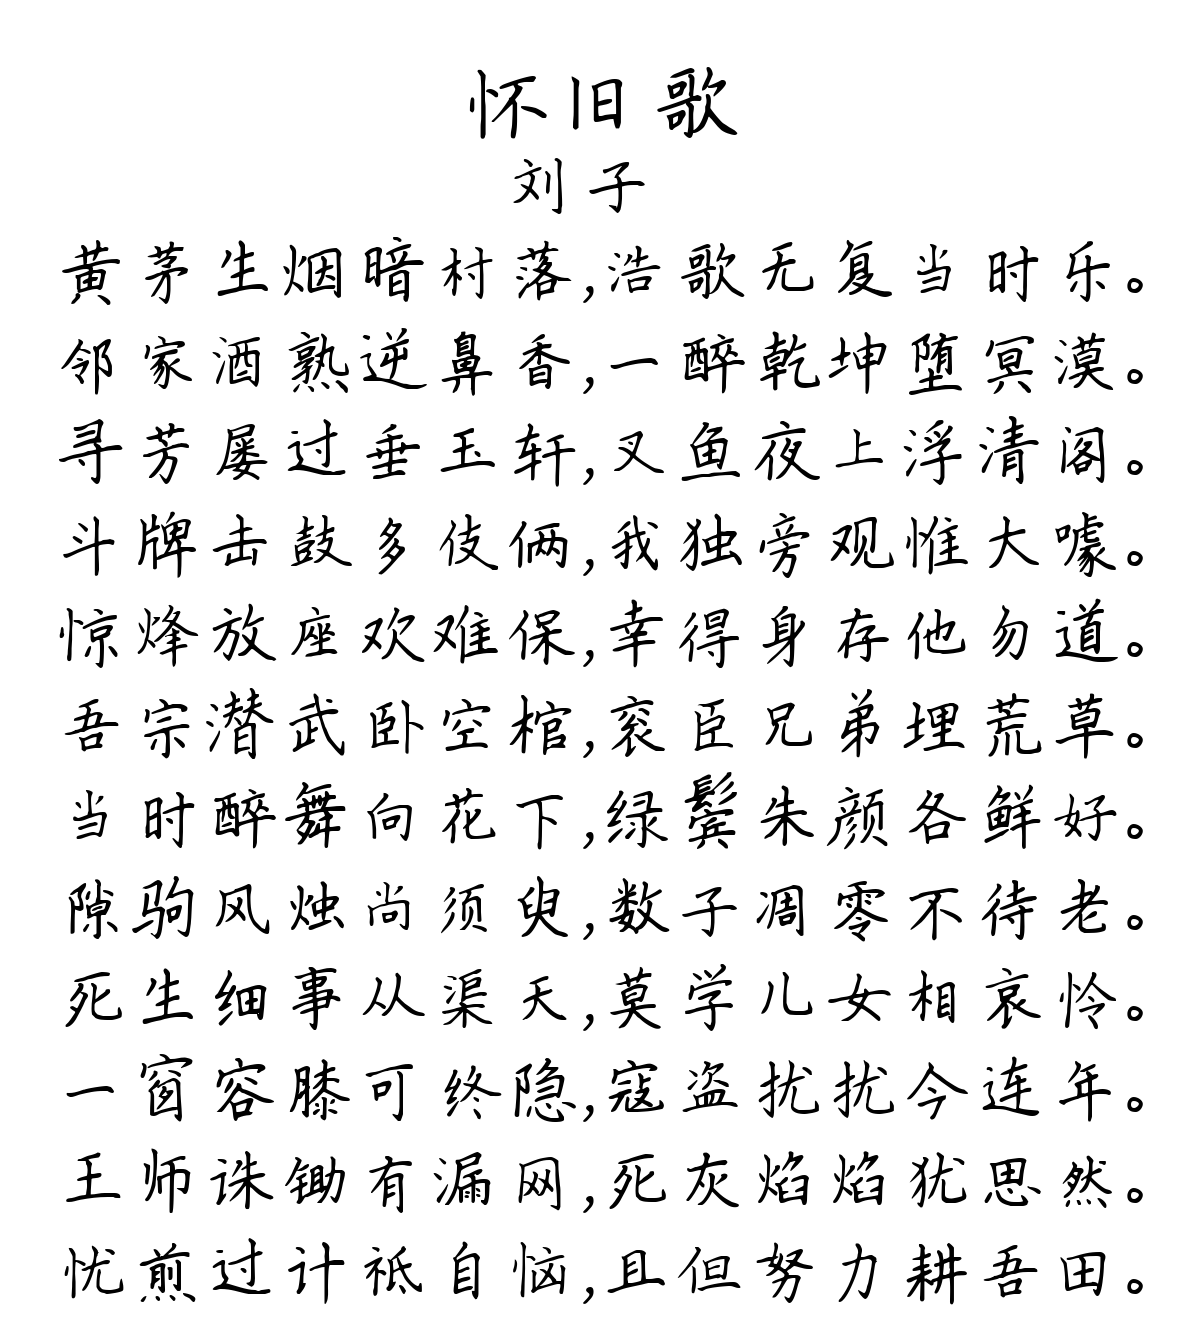 怀旧歌
刘子
黄茅生烟暗村落,浩歌无复当时乐。
邻家酒熟逆鼻香,一醉乾坤堕冥漠。
寻芳屡过垂玉轩,叉鱼夜上浮清阁。
斗牌击鼓多伎俩,我独旁观惟大噱。
惊烽放座欢难保,幸得身存他勿道。
吾宗潜武卧空棺,衮臣兄弟埋荒草。
当时醉舞向花下,绿鬓朱颜各鲜好。
隙驹风烛尚须臾,数子凋零不待老。
死生细事从渠天,莫学儿女相哀怜。
一窗容膝可终隐,寇盗扰扰今连年。
王师诛锄有漏网,死灰焰焰犹思然。
忧煎过计祗自恼,且但努力耕吾田。